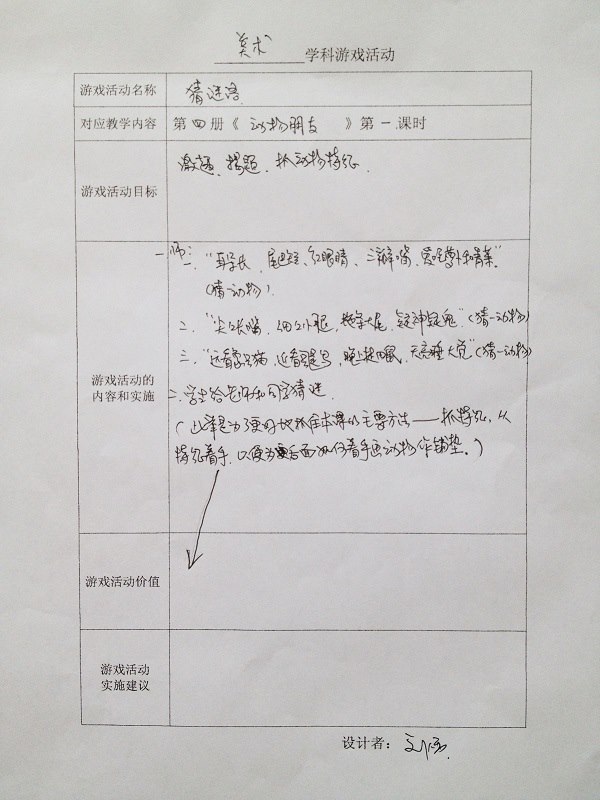 美术 学科游戏活动
游戏活动名称 猜谜语
对应教学内容 第四册《 动物朋友 》第一课时
游戏活动目标 激趣、揭题、抓动物特征.
游戏活动的
内容和实施
一、师:
一、“耳朵长、尾巴短、红眼睛、三瓣嘴、爱吃萝卜和青菜”
(猜一动物).
二、“尖尖长嘴,细细小腿,拖条大尾,疑神疑鬼”(猜一动物)
三、“远看像只猫,近看是只鸟,晚上捉田鼠,天亮睡大觉”(猜一动物)
二、学生给老师和同学猜谜
(此举是为了更好地抓住本课的主要方法——抓特征,从
特征着手,以便为后面如何着手画动物作铺垫。)
游戏活动价值
游戏活动
实施建议
设计者: